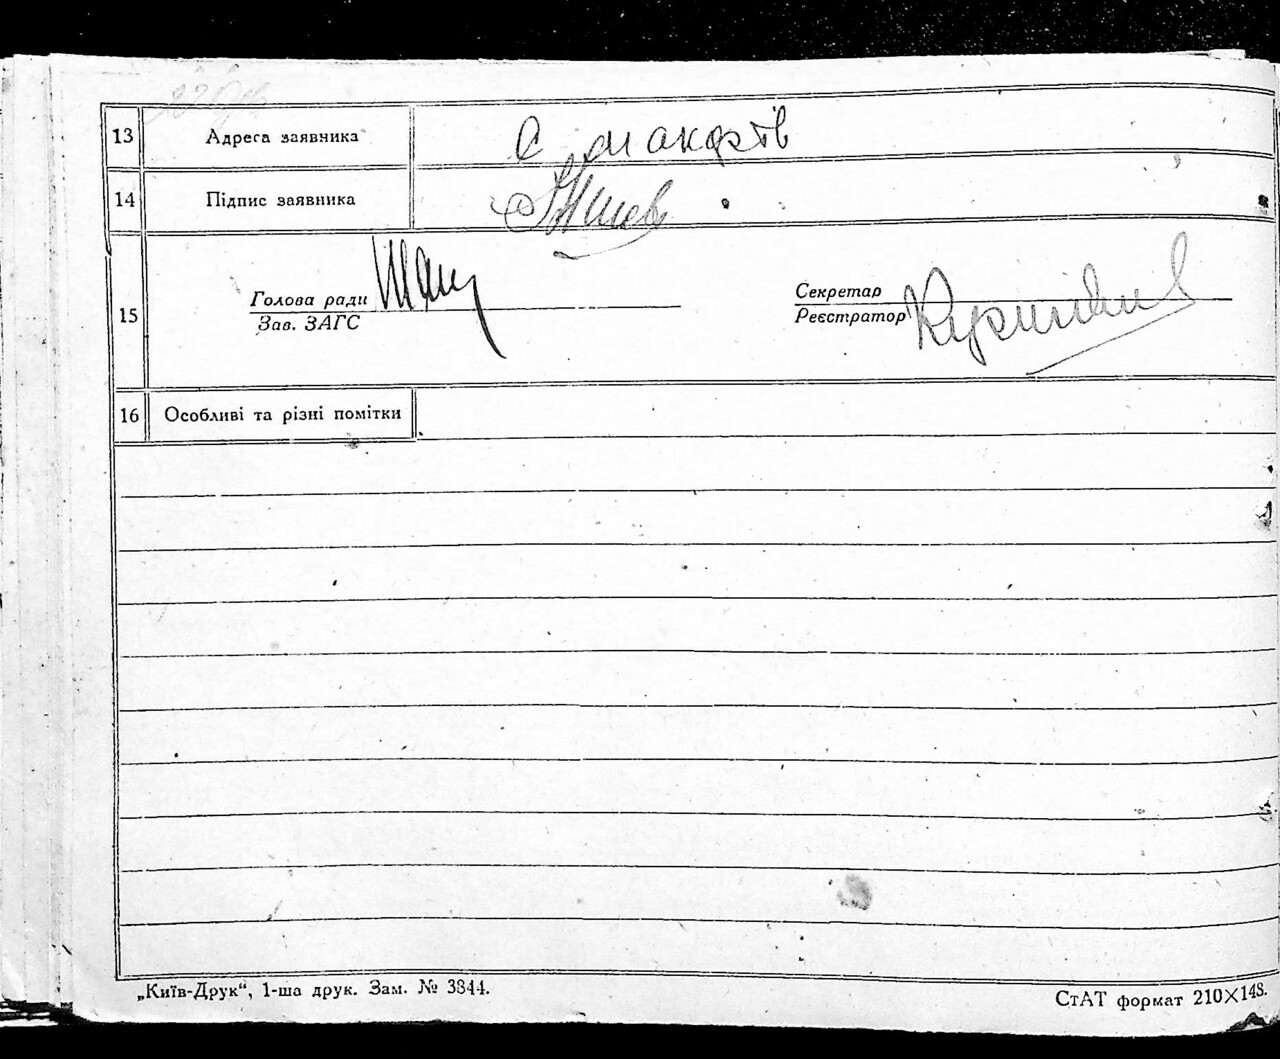 13 Адреса заявника с Макарів
14 Підпис заявника
15 Голова ради
Зав. ЗАГС
Секретар
Реєстратор
16 Особливі та різні помітки
„Київ-Друк“, 1-ша друк. Зам. № 3844.
СтАТ формат 210×148.